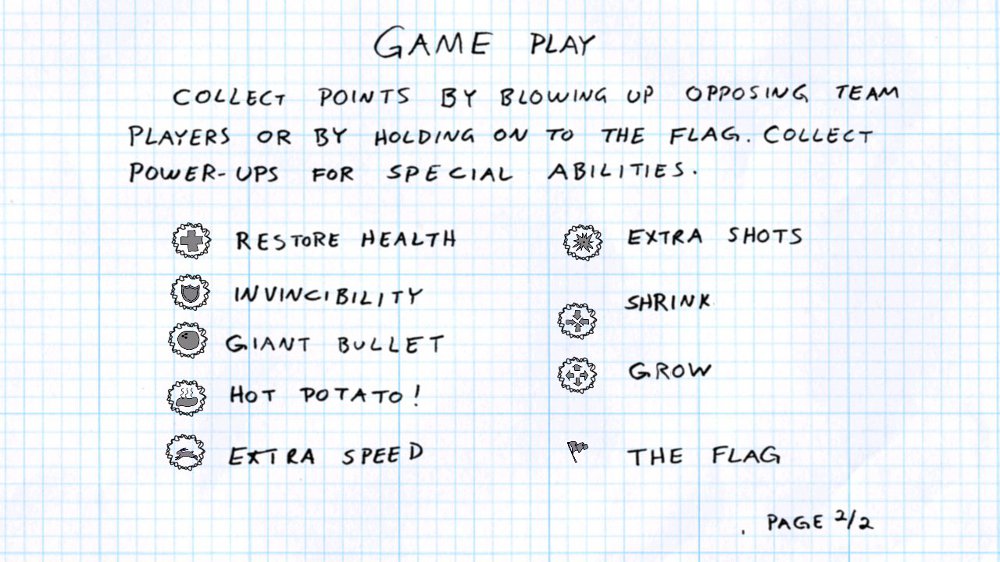 GAME PLAY
COLLECT POINTS BY BLOWING UP OPPOSING TEAM
PLAYERS OR BY HOLDING ON TO THE FLAG. COLLECT
POWER-UPS FOR SPECIAL ABILITIES.
RESTORE HEALTH
INVINCIBILITY
GIANT BULLET
HOT POTATO!
EXTRA SPEED
EXTRA SHOTS
SHRINK
GROW
THE FLAG
PAGE 2/2